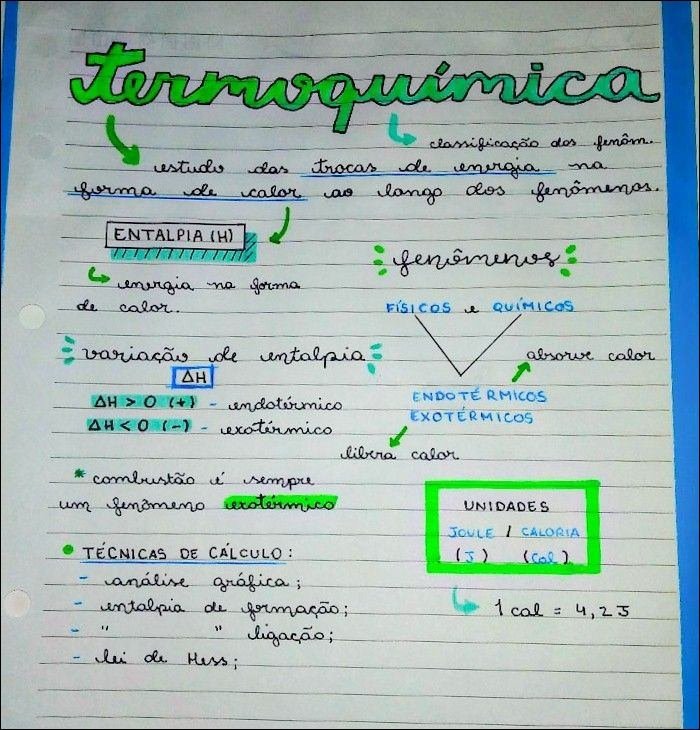 termoquímica
classificação dos fenôm.
estudo das trocas de energia na
forma de calor ao longo dos fenômenos.
ENTALPIA (H)
energia na forma
de calor.
fenômenos
FÍSICOS e QUÍMICOS
absorve calor
ENDOTÉRMICOS
EXOTÉRMICOS
libera calor
variação de entalpia
ΔH
ΔH > 0 (+) - endotérmico
ΔH < 0 (-) - exotérmico
* combustão é sempre
um fenômeno exotérmico
UNIDADES
JOULE / CALORIA
(J) (Cal)
1 cal = 4,2 J
• TÉCNICAS DE CÁLCULO:
- análise gráfica;
- entalpia de formação;
- " " ligação;
- lei de Hess;